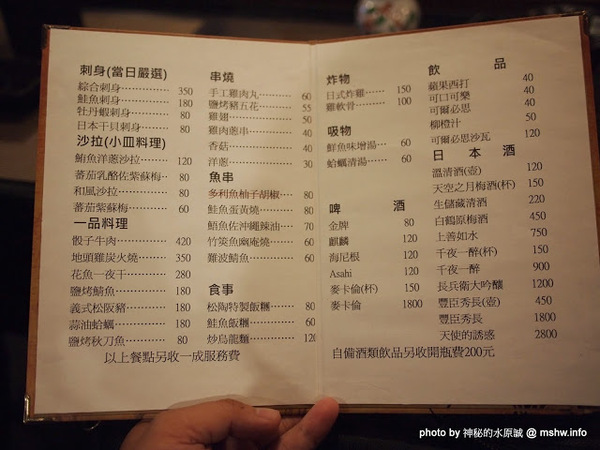 刺身(當日嚴選)
綜合刺身 350
鮭魚刺身 180
牡丹蝦刺身 80
日本干貝刺身 80
沙拉(小皿料理)
鮪魚洋蔥沙拉 120
蕃茄乳酪佐紫蘇梅 80
和風沙拉 80
蕃茄紫蘇梅 60
一品料理
骰子牛肉 420
地頭雞炭火燒 350
花魚一夜干 280
鹽烤鯖魚 180
義式松阪豬 180
蒜油蛤蠣 180
鹽烤秋刀魚 80
以上餐點另收一成服務費
串燒
手工雞肉丸 60
鹽烤豬五花 55
雞翅 50
雞肉蔥串 40
香菇 40
洋蔥 30
魚串
多利魚柚子胡椒 80
鮭魚蛋黃燒 80
鮪魚佐沖繩辣油 70
竹筴魚幽庵燒 60
難波鯖魚 60
食事
松陶特製飯糰 80
鮭魚飯糰 60
炒烏龍麵 120
炸物
日式炸雞 150
雞軟骨 100
吸物
鮮魚味增湯 60
蛤蠣清湯 60
啤酒
金牌 80
麒麟 120
海尼根 120
Asahi 120
麥卡倫(杯) 150
麥卡倫 1800
飲品
蘋果西打 40
可口可樂 40
可爾必思 40
柳橙汁 50
可爾必思沙瓦 120
日本酒
溫清酒(壺) 120
天空之月梅酒(杯) 150
生儲藏清酒 220
白鶴原梅酒 450
上善如水 750
千夜一醉(杯) 150
千夜一醉 900
長兵衛大吟釀 1200
豐臣秀長(壺) 450
豐臣秀長 1800
天使的誘惑 2800
自備酒類飲品另收開瓶費200元
photo by 神秘的水原誠 @ mshw.info